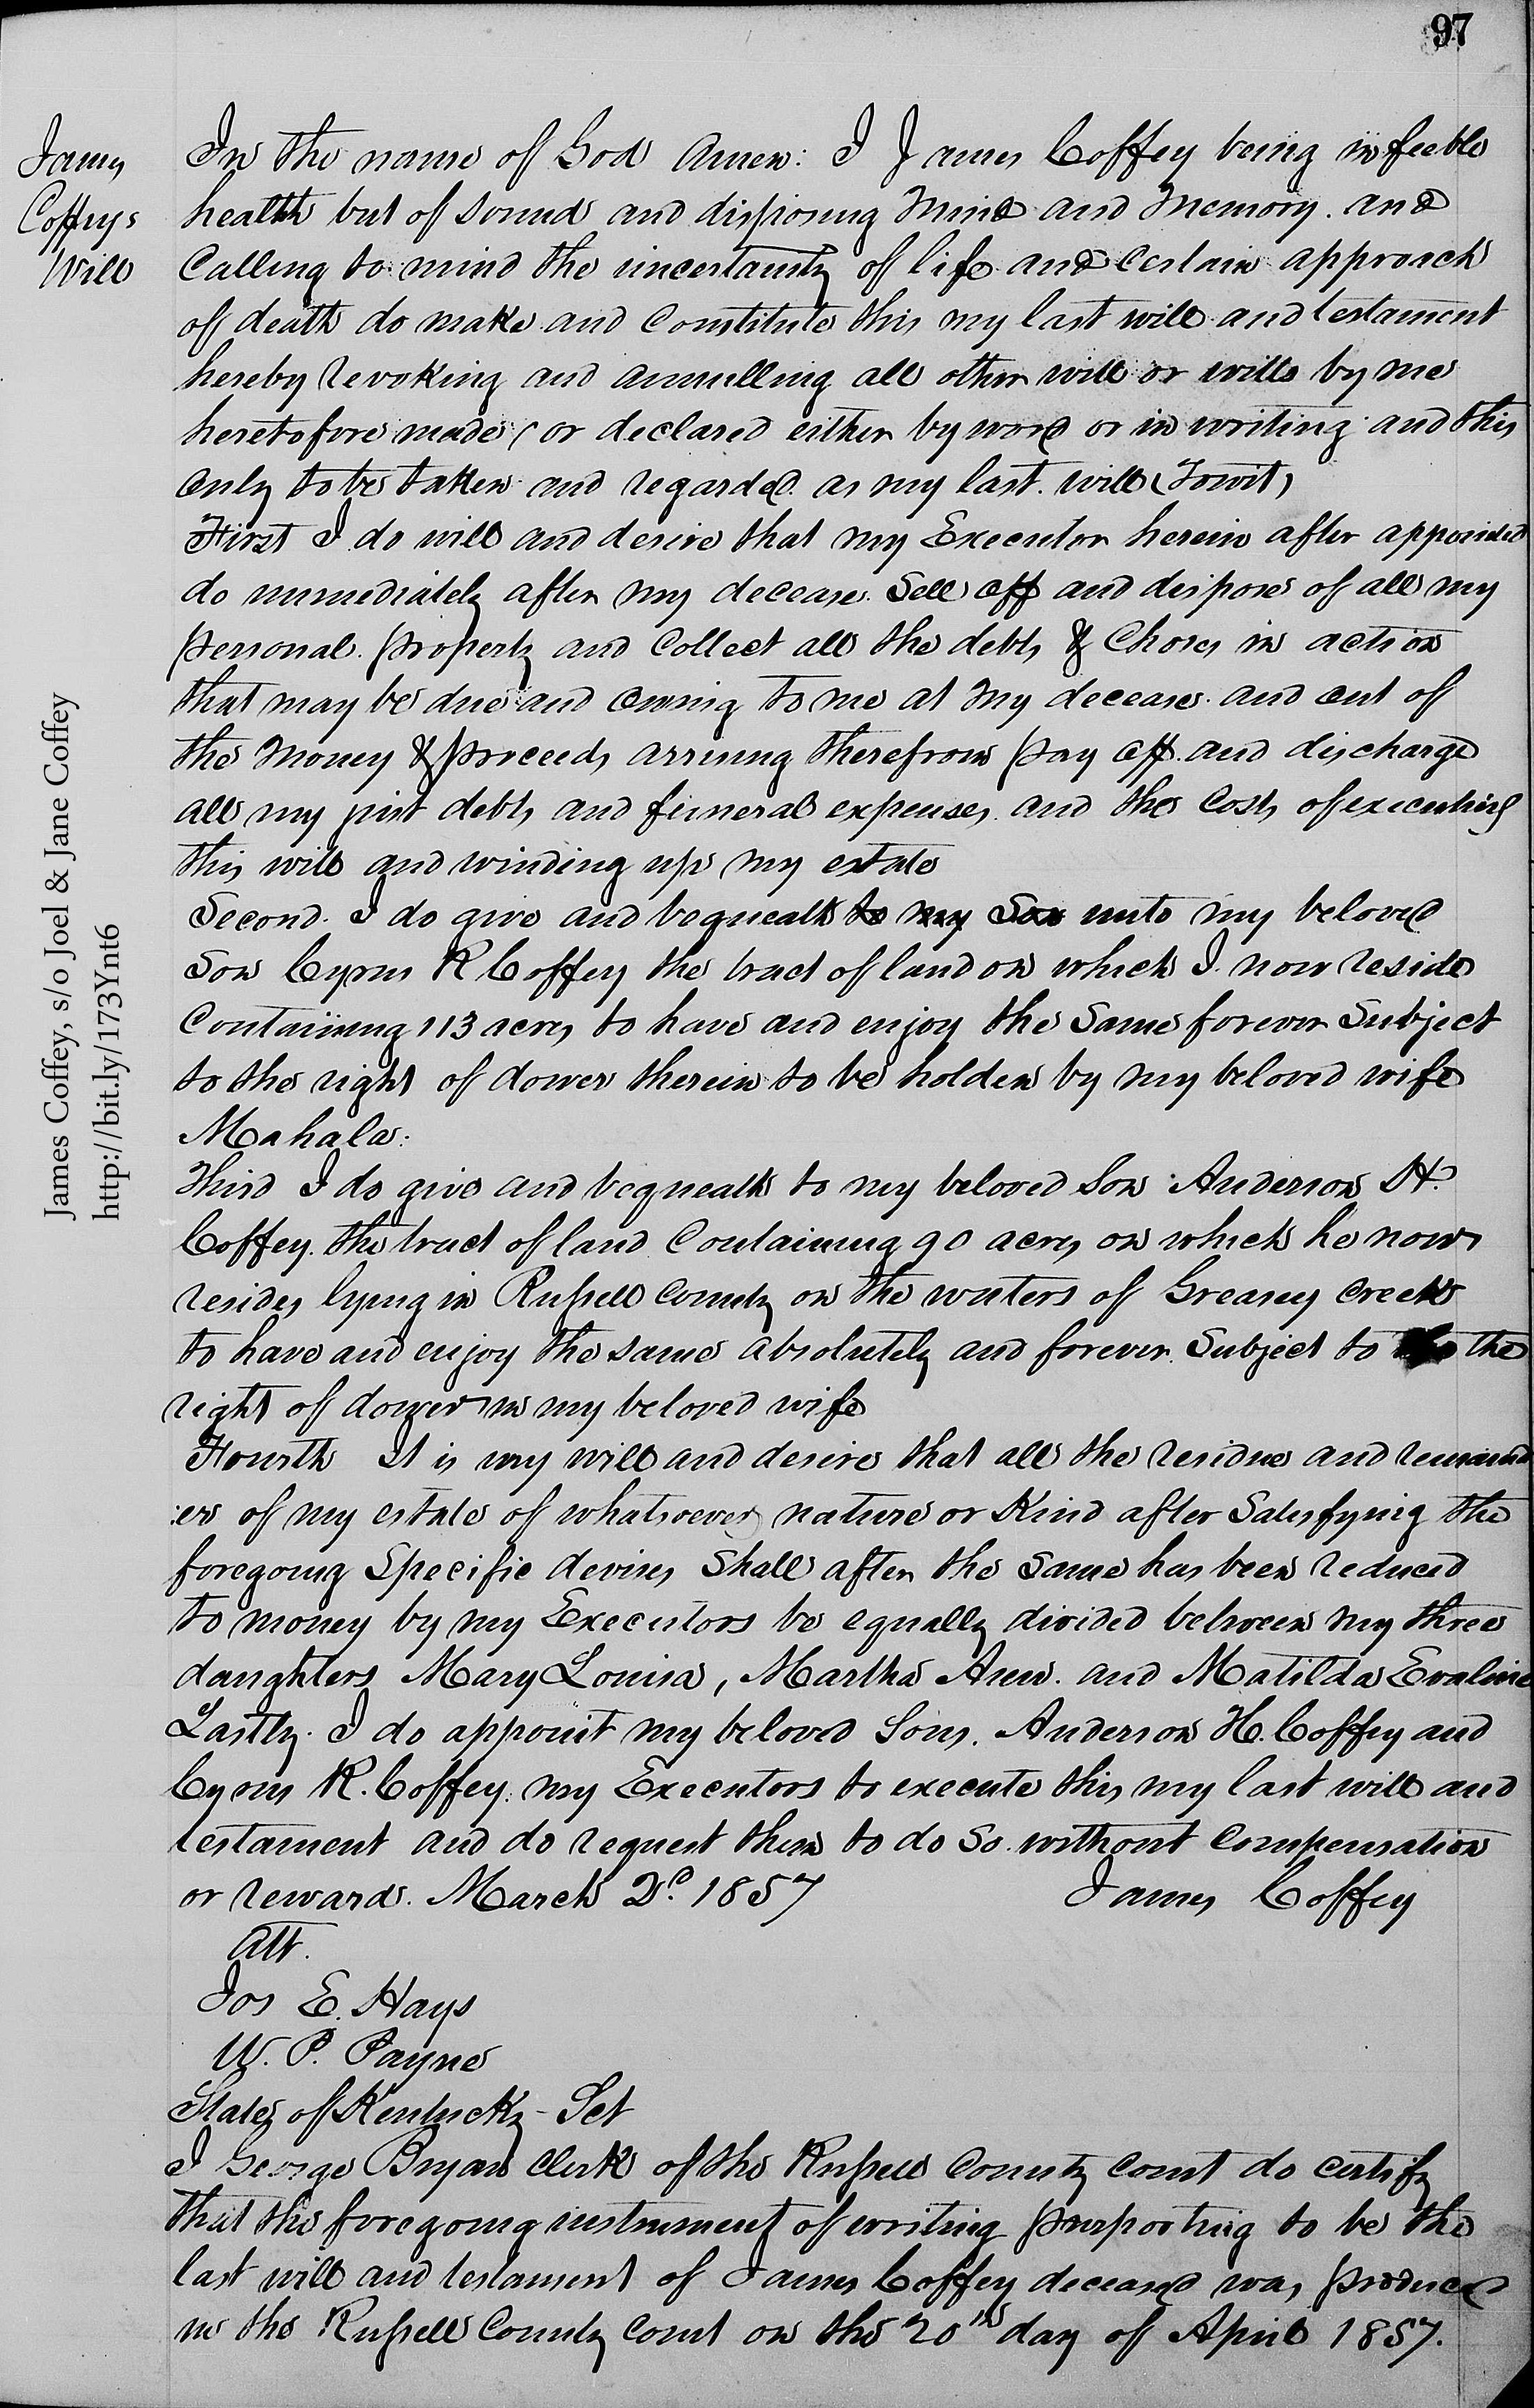 97
James
Coffeys
Will
In the name of God Amen: I James Coffey being in feeble
health but of sound and disposing mind and memory. and
Calling to mind the uncertainty of life and certain approach
of death do make and constitute this my last will and testament
hereby revoking and annulling all other will or wills by me
heretofore made (or declared either by word or in writing and this
only to be taken and regarded as my last will (Towit)
First I do will and desire that my Executor herein after appointed
do immediately after my decease Sell off and dispose of all my
personal property and Collect all the debts & Choses in action
that may be due and owing to me at my decease and out of
the money & proceeds arrising therefrom pay off and discharge
all my just debts and funeral expenses and the Costs of executing
this will and winding up my estate
Second. I do give and bequeath to my Son unto my beloved
Son Cyrus R Coffey the tract of land on which I now reside
Containing 113 acres to have and enjoy the Same forever Subject
to the right of dower therein to be holden by my beloved wife
Mahala:
Third I do give and bequeath to my beloved Son Anderson H.
Coffey. the tract of land Containing 90 acres on which he now
resides lying in Russell County on the waters of Greasey Creek
to have and enjoy the same absolutely and forever. Subject to the
right of dower in my beloved wife
Fourth It is my will and desire that all the residue and remaind
:er of my estate of whatsoever nature or Kind after Satisfying the
foregoing Specific devises Shall after the Same has been reduced
to money by my Executors be equally divided between my three
daughters Mary Louisa, Martha Ann. and Matilda Evaline
Lastly. I do appoint my beloved Sons. Anderson H. Coffey and
Cyrus R. Coffey. my Executors to execute this my last will and
testament and do request them to do So without Compensation
or reward. March 2d. 1857 James Coffey
Att.
Jos E. Hays
W. P. Payne
State of Kentucky - Sct
I George Bryan Clerk of the Russell County Court do certify
that the foregoing instrument of writing purporting to be the
last will and testament of James Coffey deceased was produced
in the Russell County Court on the 20th day of April 1857.
James Coffey, s/o Joel & Jane Coffey
http://bit.ly/173Ynt6